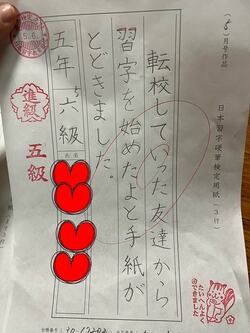 月号作品
日本習字硬筆検定用紙(3行)
転校していった友達から
習字を始めたよと手紙が
とどきました。
五年
六級
氏名
進級
五級
たいへんよく
できました